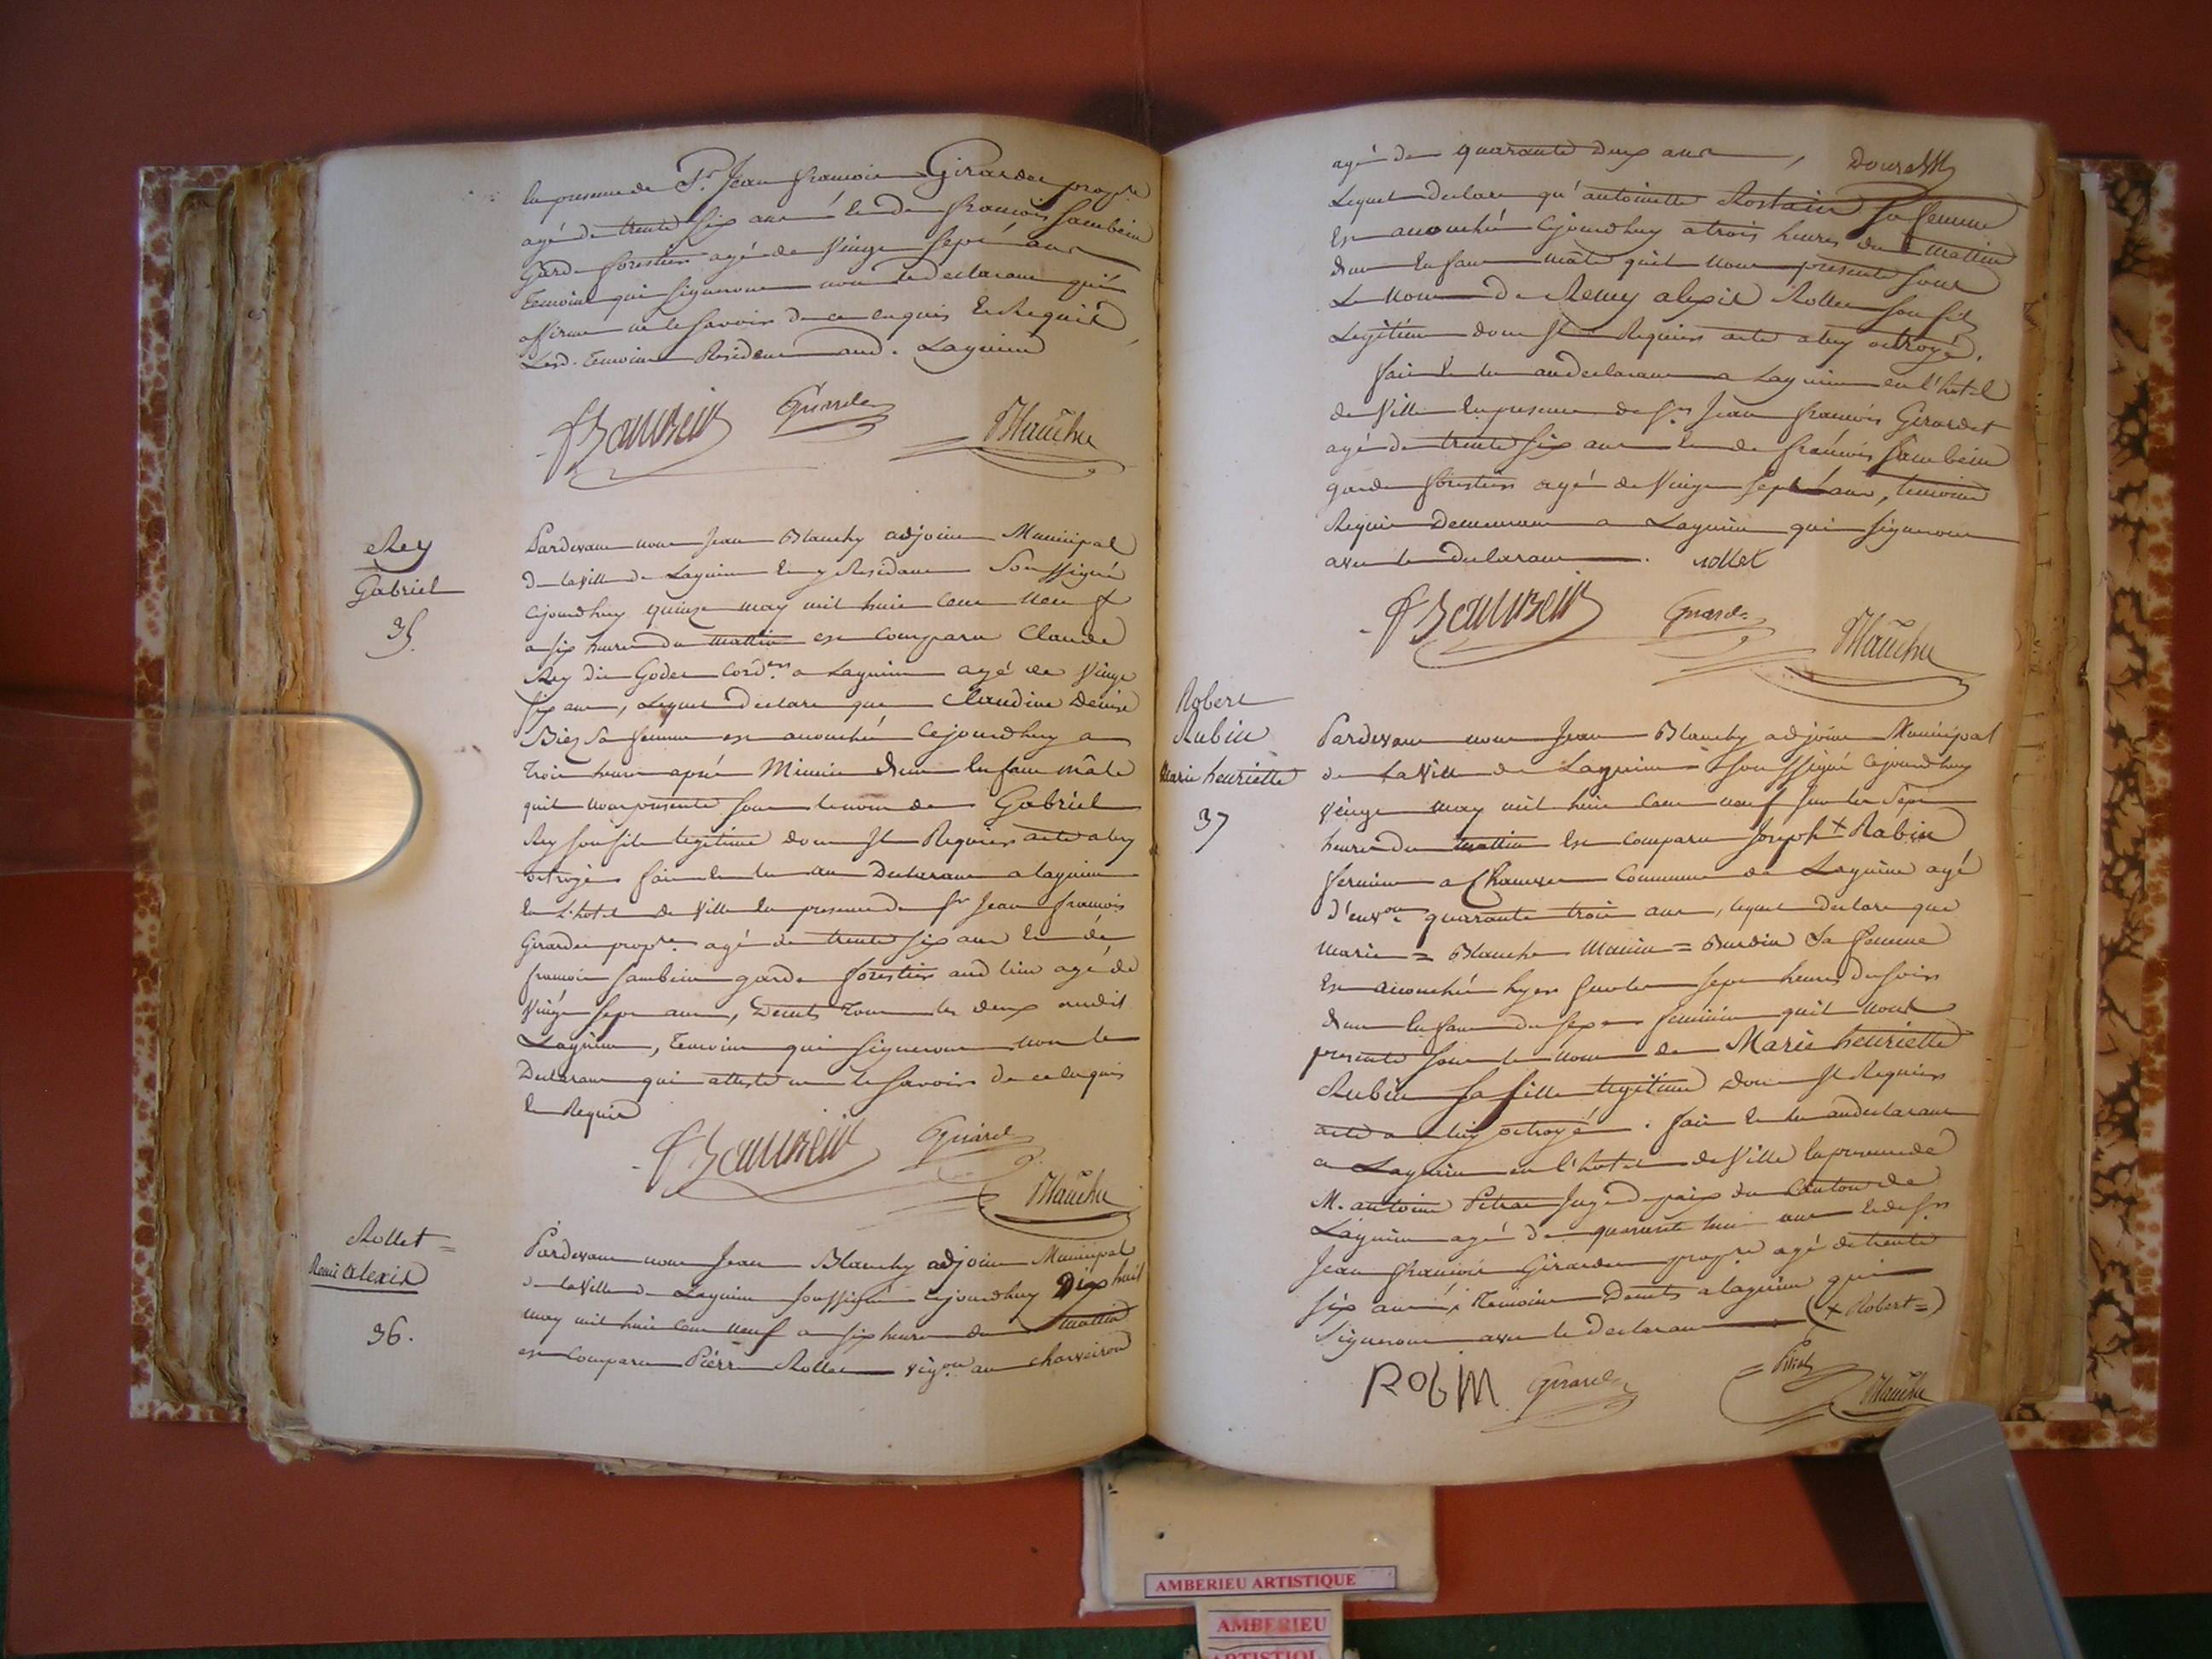 En presence de Sr. Jean francois Girardet propre
agé de trente six ans et de francois Sambein
Garde forestier agé de Vingt Sept ans
Temoins qui signeront non le declarant qui
affirme ne le savoir de ce enquis Et Requis
Lesd. temoins Residant aud. Lagnieu
FSambein Girardet Blanchy
Rey
Gabriel
35.
Pardevant nous Jean Blanchy adjoint Municipal
De la Ville de Lagnieu En y Residant Soussigné
Cejourdhuy quinze may mil huit Cent Neuf
a six heures du mattin est Comparu Claude
Rey dit Godet Cordrs a Lagnieu agé de Vingt
six ans, Lequel declare que Claudine Denise
Biez Sa femme est accouché Cejourdhuy a
trois heures aprés Minuit d'un Enfant mâle
quil nous presente sous le nom de Gabriel
Rey son fils legitime dont Il Requiert acte a luy
octroyé fait et lu au Declarant a Lagnieu
En L'hotel de Ville En presence de Sr Jean francois
Girardet propre agé de trente six ans Et de
francois Sambein garde forestier aud lieu agé de
Vingt sept ans, Demts Tous les deux audit
Lagnieu, Temoins qui signeront non le
Declarant qui atteste ne le savoir de ce enquis
Et Requis
FSambein Girardet
Blanchy
Rollet =
Remi Alexis
36.
Pardevant nous Jean Blanchy adjoint Municipal
de la Ville de Lagnieu soussigné cejourdhuy Dix huit
may mil huit Cent neuf a six heures du mattin
est Comparu Piérre Rollet vigon au charveiron
agé de quarante deux ans,
Lequel declare qu'antoinette Rostain sa femme
Est accouché Cejourdhuy a trois heures du mattin
d'un Enfant mâle quil nous presente sous
Le Nom de Remy alexis Rollet son fils
Legitime dont Il Requiert acte a luy octroyé.
fait Et lu au declarant a Lagnieu en l'hotel
de Ville En presence de Sr. Jean francois Girardet
agé de trente six ans Et de francois Sambein
garde forestier agé de Vingt sept ans, temoins
Requis Demeurant a Lagnieu qui signeront
avec le declarant. rollet
FSambein Girardet Blanchy
Robert
Rubin
Marie henriette
37
Pardevant nous Jean Blanchy adjoint Municipal
de La Ville de Lagnieu soussigné Cejourdhuy
Vingt may mil huit Cent neuf sur les Sept
heures du mattin Est Comparu Joseph + Rubin
fermier a Commune de Lagnieu agé
d'environ quarante trois ans, lequel declare que
Marie = Blanche = Burdin Sa femme
Est accouché hyer sur les sept heures du soir
d'un Enfant du sexe feminin quil nous
presente sous le nom de Marie henriette
Rubin sa fille legitime dont Il Requiert
acte a luy octroyé. fait Et lu au declarant
a Lagnieu en l'hotel de Ville En presence de
M. antoine Juge de paix du Canton de
Lagnieu agé de quarante huit ans Et de Sr
Jean francois Girardet propre agé de trente
six ans, Temoins Demts a lagnieu qui
Signeront avec le declarant (+ Robert =)
Robin Girardet Blanchy
AMBERIEU ARTISTIQUE
AMBERIEU
ARTISTIQU